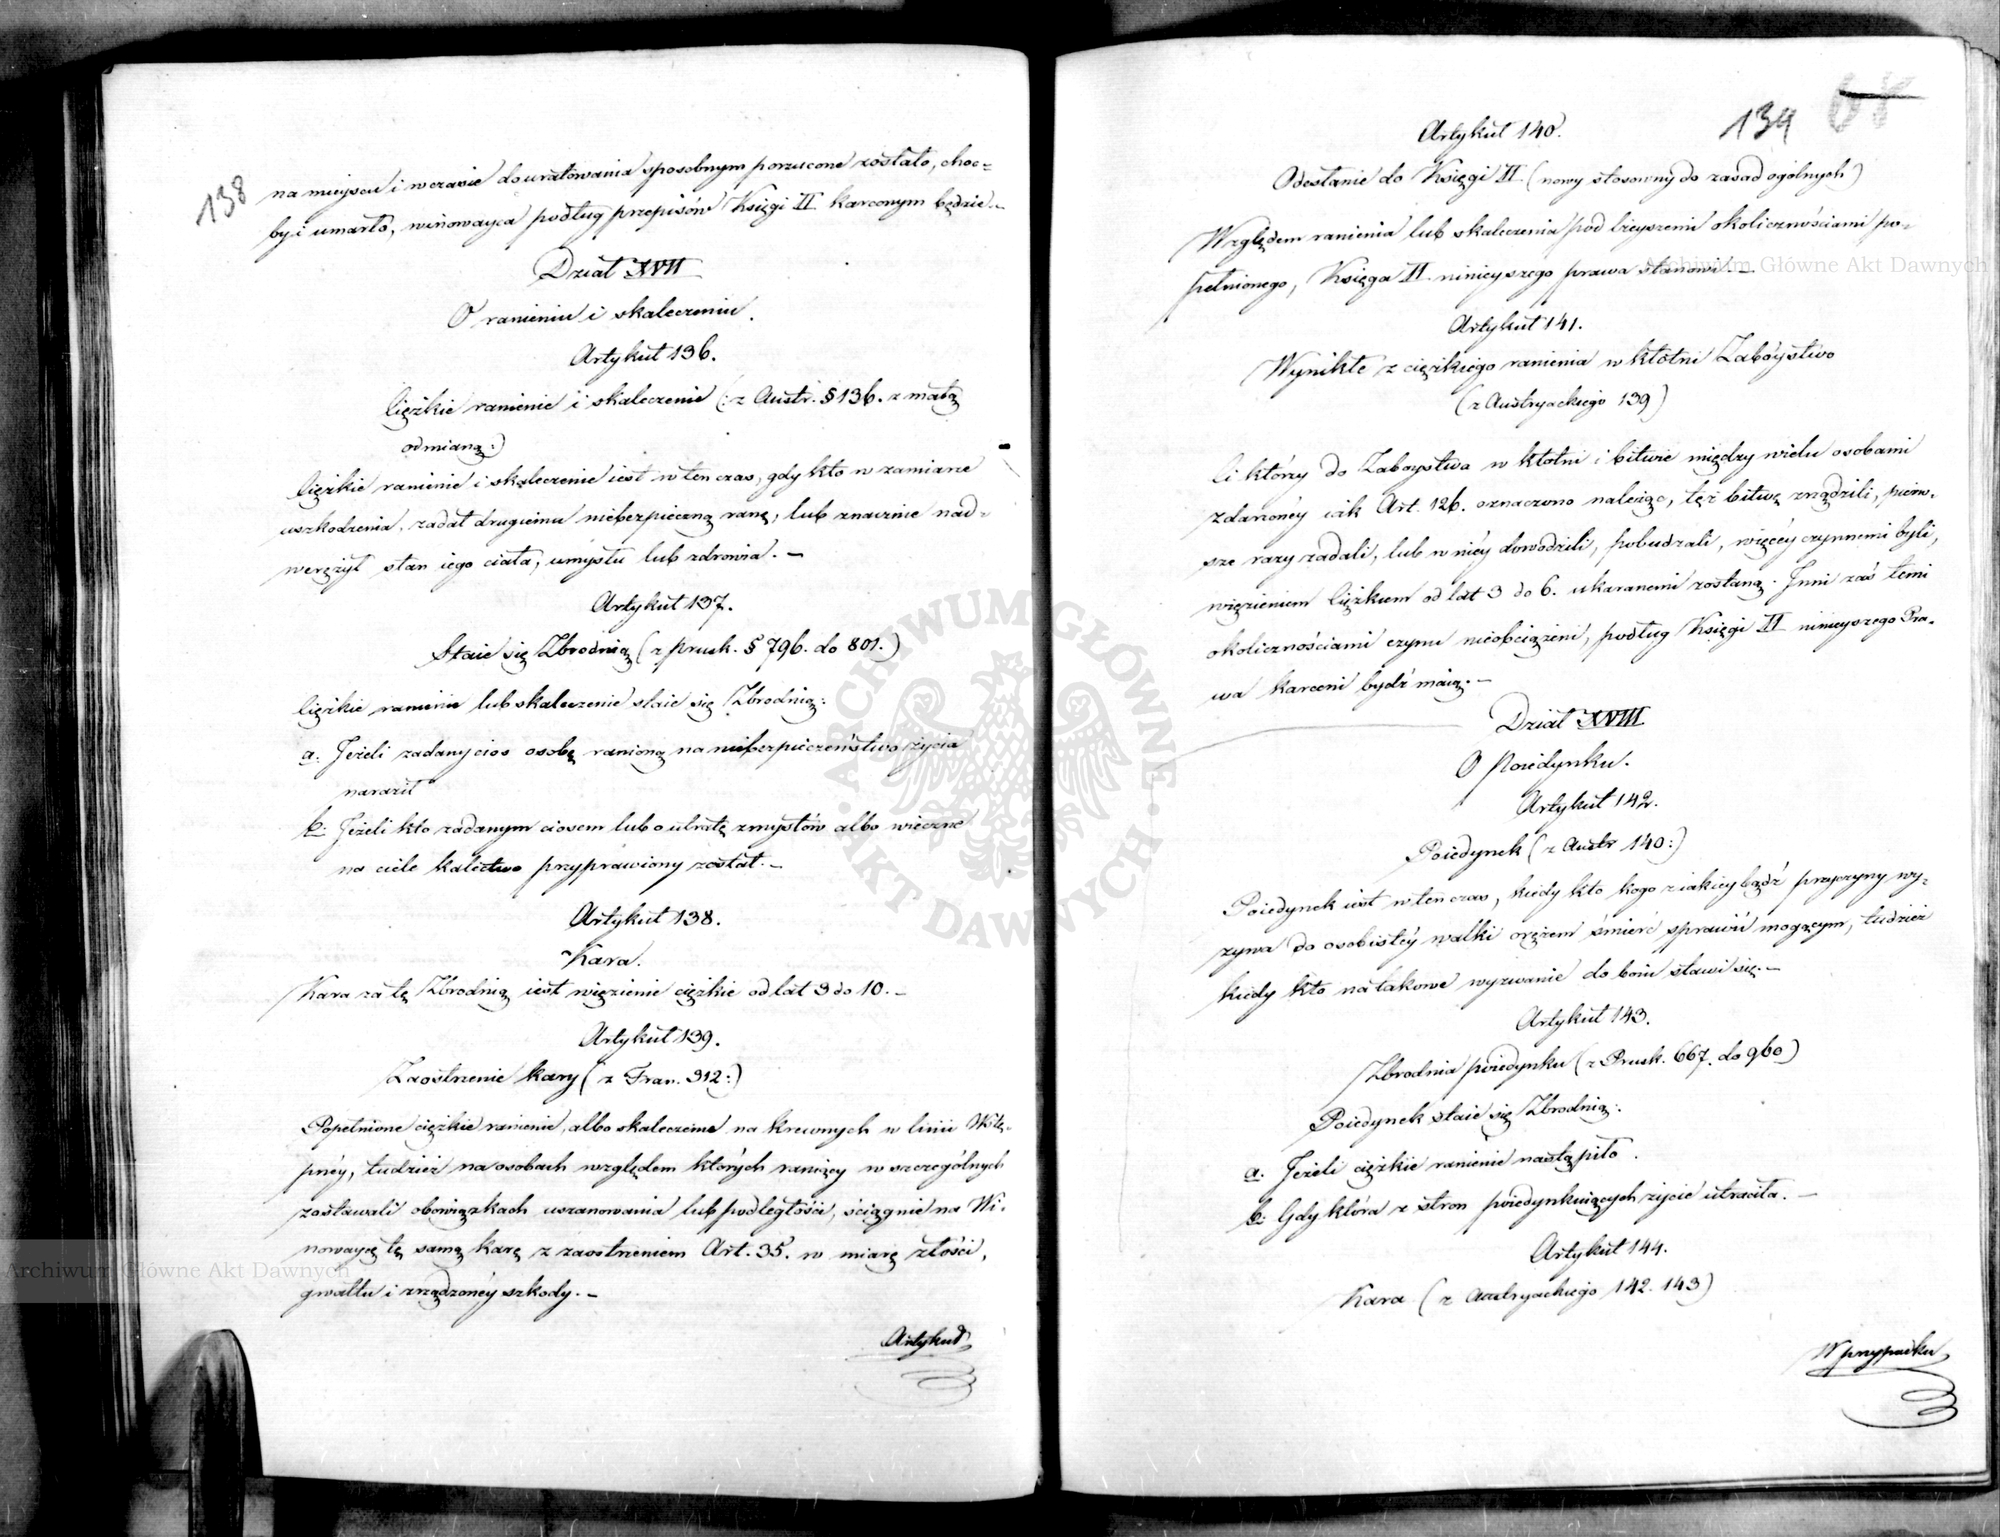 138
na miejscu i w czasie do uratowania sposobnym porzucone zostało, choc=
by i umarło, winowayca podług przepisów Księgi II karconym będzie.-
Dział XVII
O ranieniu i skaleczeniu.
Artykuł 136.
Ciężkie ranienie i skaleczenie (: z Austr. § 136. z małą
odmianą :)
Ciężkie ranienie i skaleczenie iest w ten czas, gdy kto w zamiarze
uszkodzenia, zadał drugiemu niebezpieczną ranę, lub znacznie nad=
weręzył stan iego ciała, umysłu lub zdrowia. -
Artykuł 137.
Staie się Zbrodnią (z Prusk. § 796. do 801.)
Ciężkie ranienie lub skaleczenie staie się Zbrodnią:
a. Jeżeli zadany cios osobę ranioną na niebezpieczeństwo życia
naraził
b. Jeżeli kto zadanym ciosem lub o utratę zmysłów albo wieczne
na ciele kalectwo przyprawiony został. -
Artykuł 138.
Kara.
Kara za tę Zbrodnią iest więzienie ciężkie od lat 3 do 10. -
Artykuł 139.
Zaostrzenie kary (z Fran. 312:)
Popełnione ciężkie ranienie, albo skaleczenie na krewnych w linii Wstę-
pnéy, tudzież na osobach względem których raniący w szczególnych
zostawali obowiązkach uszanowania lub podległości, ściągnie na Wi-
nowaycę tę samą karę z zaostrzeniem Art. 35. w miarę złości,
gwałtu i zrządzonéy szkody. -
Artykuł
139
Artykuł 140.
Odesłanie do Księgi II (nowy stosowny do zasad ogólnych)
Względem ranienia lub skaleczenia pod lżeyszemi okolicznościami po-
pełnionego, Księga II. ninieyszego prawa stanowi. -
Artykuł 141.
Wynikłe z ciężkiego ranienia w kłótni Zabóystwo
(z Austryackiego 139)
Ci którzy do Zabóystwa w kłótni i bitwie między wielu osobami
zdarzonéy iak Art. 126. oznaczono należąc, tęż bitwę zrządzili, pierw-
sze razy zadali, lub w niéy dowodzili, pobudzali, więcéy czynnemi byli,
więzieniem Ciężkiem od lat 3 do 6. ukaranemi zostaną. Inni zaś temi
okolicznościami czynu nieobciążeni, podług Księgi II ninieyszego Pra-
wa karceni bydź maią. -
Dział XVIII
O Poiedynku.
Artykuł 142.
Poiedynek (z Austr 140:)
Poiedynek iest w ten czas, kiedy kto kogo z iakiey bądź przyczyny wy-
zywa do osobistéy walki orężem śmierć sprawić mogącym, tudzież
kiedy kto na takowe wyzwanie do boiu stawi się. -
Artykuł 143.
Zbrodnia poiedynku (z Prusk. 667. do 960)
Poiedynek staie się Zbrodnią:
a. Jeżeli ciężkie ranienie nastąpiło.
b. Gdy która z stron poiedynkuiących życie utraciła. -
Artykuł 144.
Kara (z Austryackiego 142. 143)
W przypadku
ARCHIWUM GŁÓWNE
AKT DAWNYCH
Archiwum Główne Akt Dawnych
Archiwum Główne Akt Dawnych